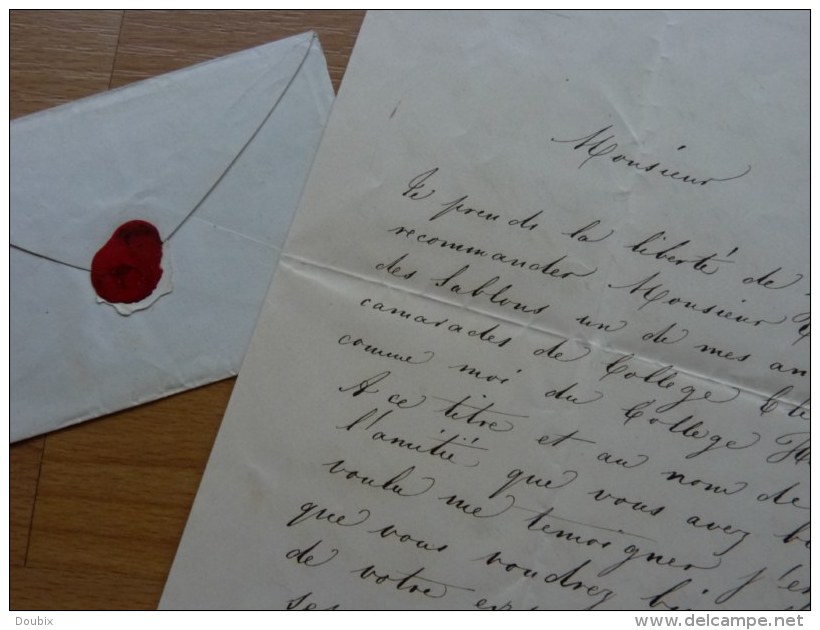 Monsieur
Je prends la liberté de
recommander Monsieur
des Sablons un de mes an
camarades de College
comme moi du College
A ce titre et au nom de
l'amitié, que vous avez
voulu me temoigner j'es
que vous voudrez
de votre
Doubix
www.delcampe.net